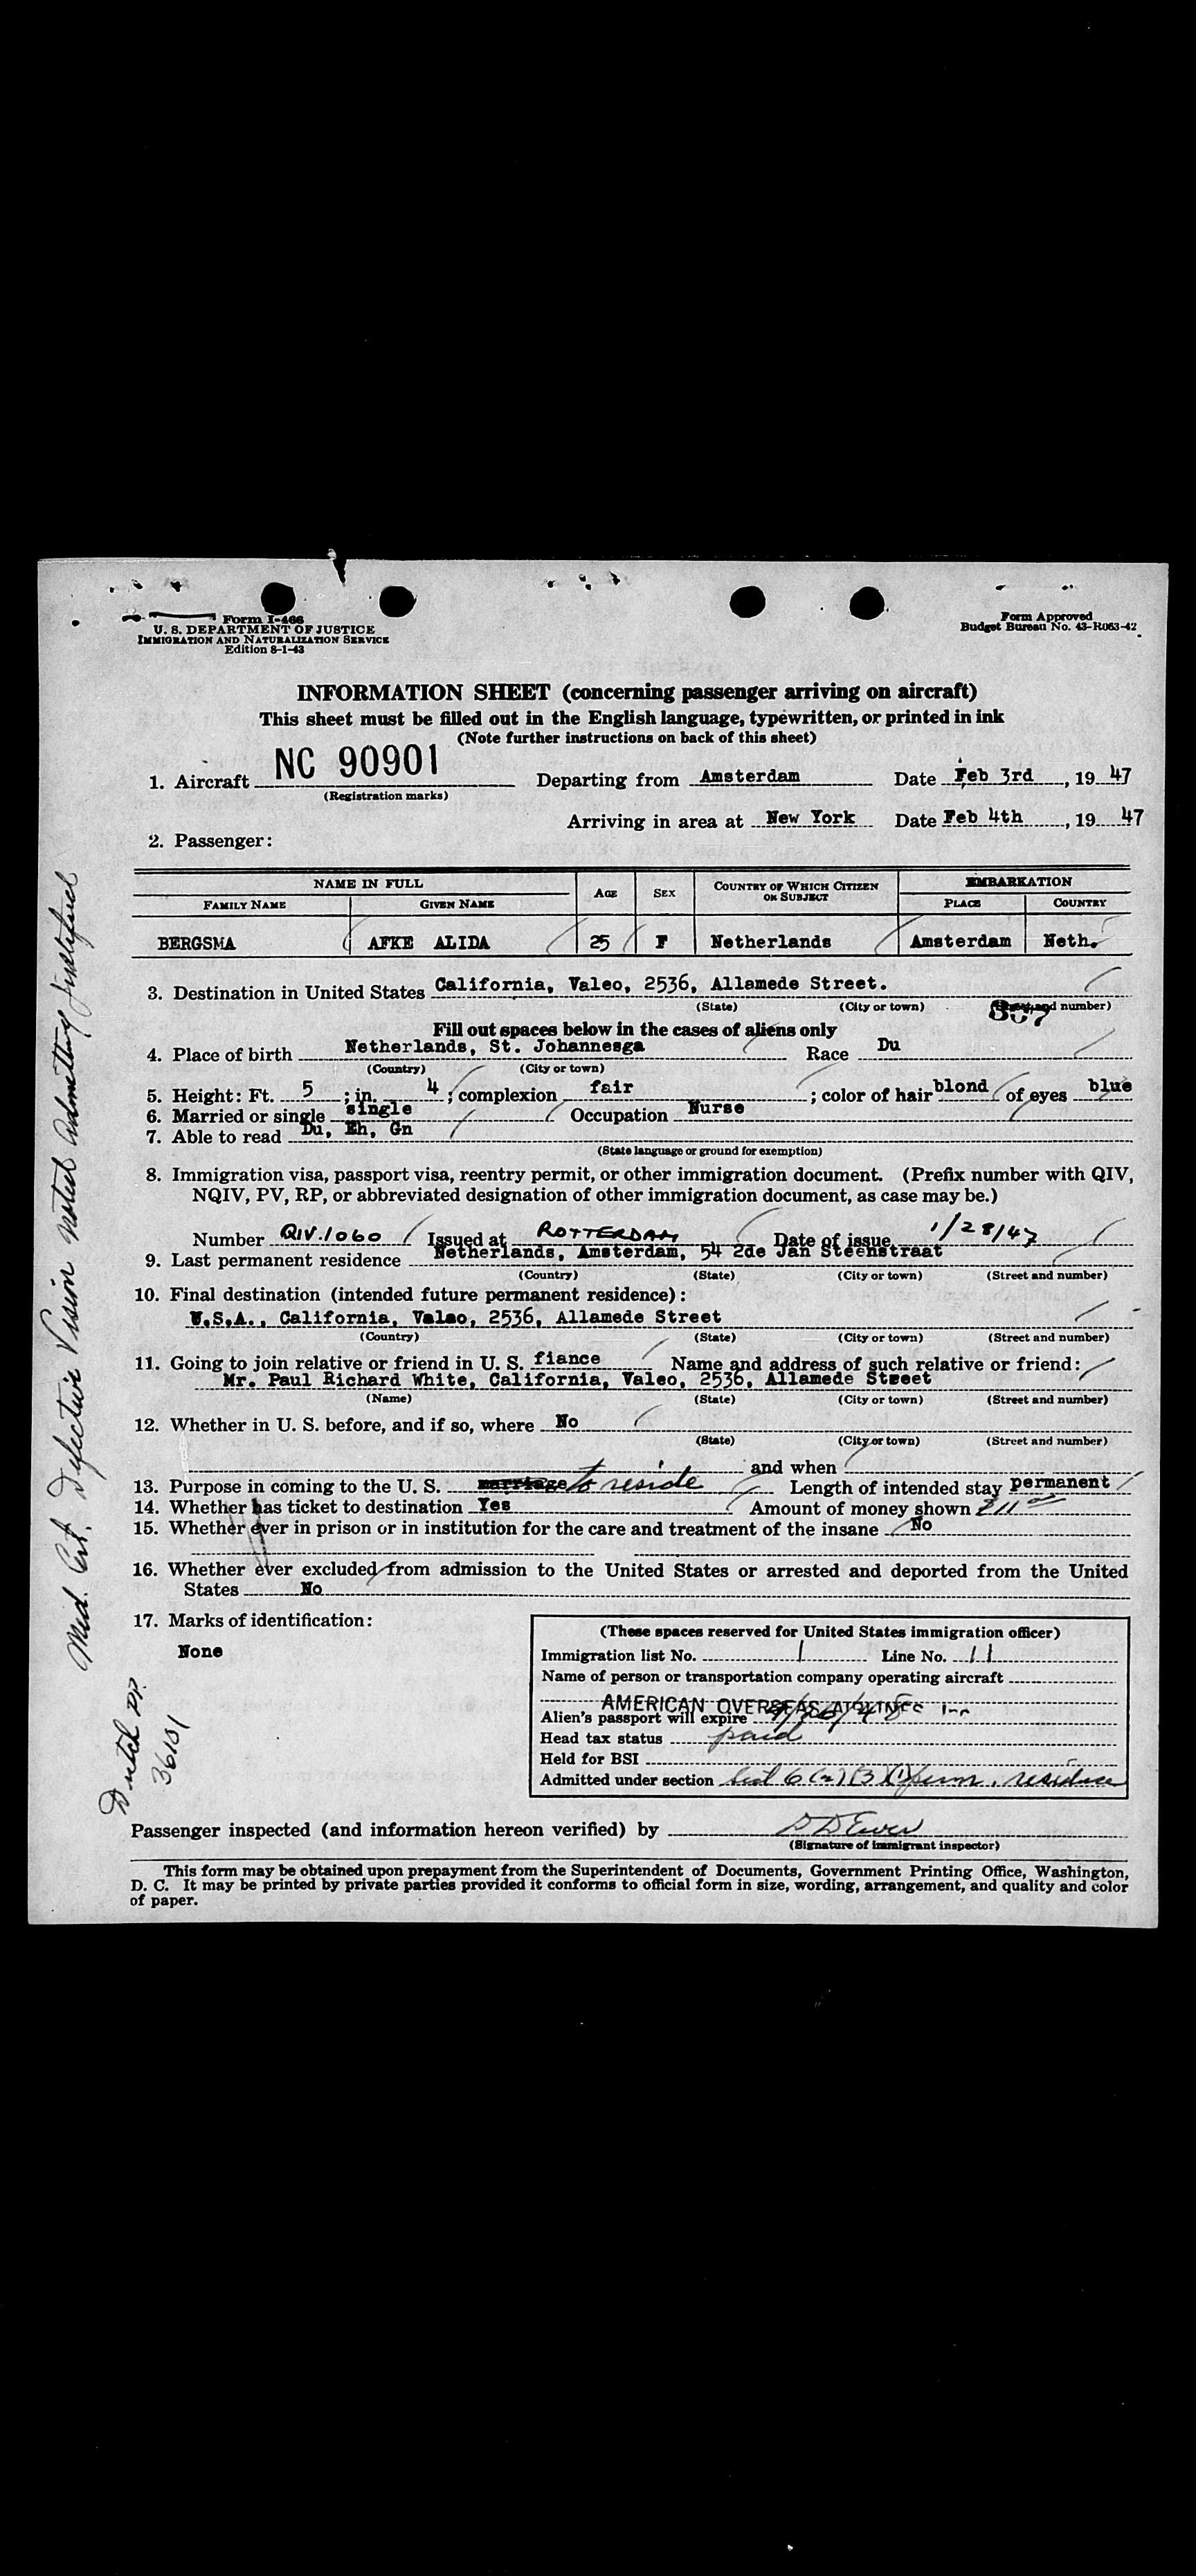 Form I-466
U. S. DEPARTMENT OF JUSTICE
IMMIGRATION AND NATURALIZATION SERVICE
Edition 8-1-43
Form Approved
Budget Bureau No. 43-R063-42
INFORMATION SHEET (concerning passenger arriving on aircraft)
This sheet must be filled out in the English language, typewritten, or printed in ink
(Note further instructions on back of this sheet)
1. Aircraft NC 90901 Departing from Amsterdam Date Feb 3rd, 19 47
(Registration marks)
Arriving in area at New York Date Feb 4th, 19 47
2. Passenger:
NAME IN FULL AGE SEX COUNTRY OF WHICH CITIZEN OR SUBJECT EMBARKATION
FAMILY NAME GIVEN NAME PLACE COUNTRY
BERGSMA AFKE ALIDA 25 F Netherlands Amsterdam Neth.
3. Destination in United States California, Valeo, 2536, Allamede Street.
(State) (City or town) and number)
Fill out spaces below in the cases of aliens only
4. Place of birth Netherlands, St. Johannesga Race Du
(Country) (City or town)
5. Height: Ft. 5 ; in. 4 ; complexion fair ; color of hair blond of eyes blue
6. Married or single single Occupation Nurse
7. Able to read Du, Eh, Gn
(State language or ground for exemption)
8. Immigration visa, passport visa, reentry permit, or other immigration document. (Prefix number with QIV,
NQIV, PV, RP, or abbreviated designation of other immigration document, as case may be.)
Number QIV.1060 Issued at ROTTERDAM Date of issue 1/28/47
9. Last permanent residence Netherlands, Amsterdam, 54 2de Jan Steenstraat
(Country) (State) (City or town) (Street and number)
10. Final destination (intended future permanent residence):
U.S.A., California, Valeo, 2536, Allamede Street
(Country) (State) (City or town) (Street and number)
11. Going to join relative or friend in U. S. fiance Name and address of such relative or friend:
Mr. Paul Richard White, California, Valeo, 2536, Allamede Street
(Name) (State) (City or town) (Street and number)
12. Whether in U. S. before, and if so, where No
(State) (City or town) (Street and number)
and when
13. Purpose in coming to the U. S. marriage to reside Length of intended stay permanent
14. Whether has ticket to destination Yes Amount of money shown $11 00
15. Whether ever in prison or in institution for the care and treatment of the insane No
16. Whether ever excluded from admission to the United States or arrested and deported from the United
States No
17. Marks of identification:
None
(These spaces reserved for United States immigration officer)
Immigration list No. 1 Line No. 11
Name of person or transportation company operating aircraft
AMERICAN OVERSEAS AIRLINES Inc
Alien's passport will expire
Head tax status paid
Held for BSI
Admitted under section perm. residence
Passenger inspected (and information hereon verified) by
(Signature of immigrant inspector)
This form may be obtained upon prepayment from the Superintendent of Documents, Government Printing Office, Washington,
D. C. It may be printed by private parties provided it conforms to official form in size, wording, arrangement, and quality and color
of paper.
Med. Cert. Defective Vision noted Admitting
Dutch PP.
36101